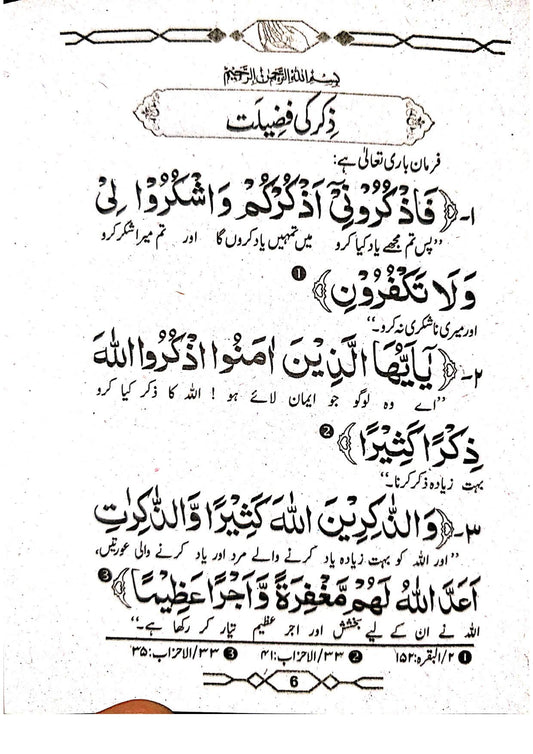 بِسْمِ اللهِ الرَّحْمٰنِ الرَّحِيْمِ
ذِکر کی فضِیلَت
فرمان باری تعالیٰ ہے:
۱۔ ﴿فَاذْكُرُوْنِيْٓ اَذْكُرْكُمْ وَاشْكُرُوْا لِيْ
’’پس تم مجھے یاد کیا کرو میں تمہیں یاد کروں گا اور تم میرا شکر کرو
وَلَا تَكْفُرُوْنِ﴾ ❶
اور میری ناشکری نہ کرو۔‘‘
۲۔ ﴿يٰٓاَيُّهَا الَّذِيْنَ اٰمَنُوا اذْكُرُوا اللّٰهَ
’’اے وہ لوگو جو ایمان لائے ہو ! اللہ کا ذکر کیا کرو
ذِكْرًا كَثِيْرًا﴾ ❷
بہت زیادہ ذکر کرنا۔‘‘
۳۔ ﴿وَالذّٰكِرِيْنَ اللّٰهَ كَثِيْرًا وَّالذّٰكِرٰتِ
’’اور اللہ کو بہت زیادہ یاد کرنے والے مرد اور یاد کرنے والی عورتیں،
اَعَدَّ اللّٰهُ لَهُمْ مَّغْفِرَةً وَّاَجْرًا عَظِيْمًا﴾ ❸
اللہ نے ان کے لیے بخشش اور اجر عظیم تیار کر رکھا ہے۔‘‘
❶ ۲/البقرہ:۱۵۲ ❷ ۳۳/الاحزاب:۴۱ ❸ ۳۳/الاحزاب:۳۵
6